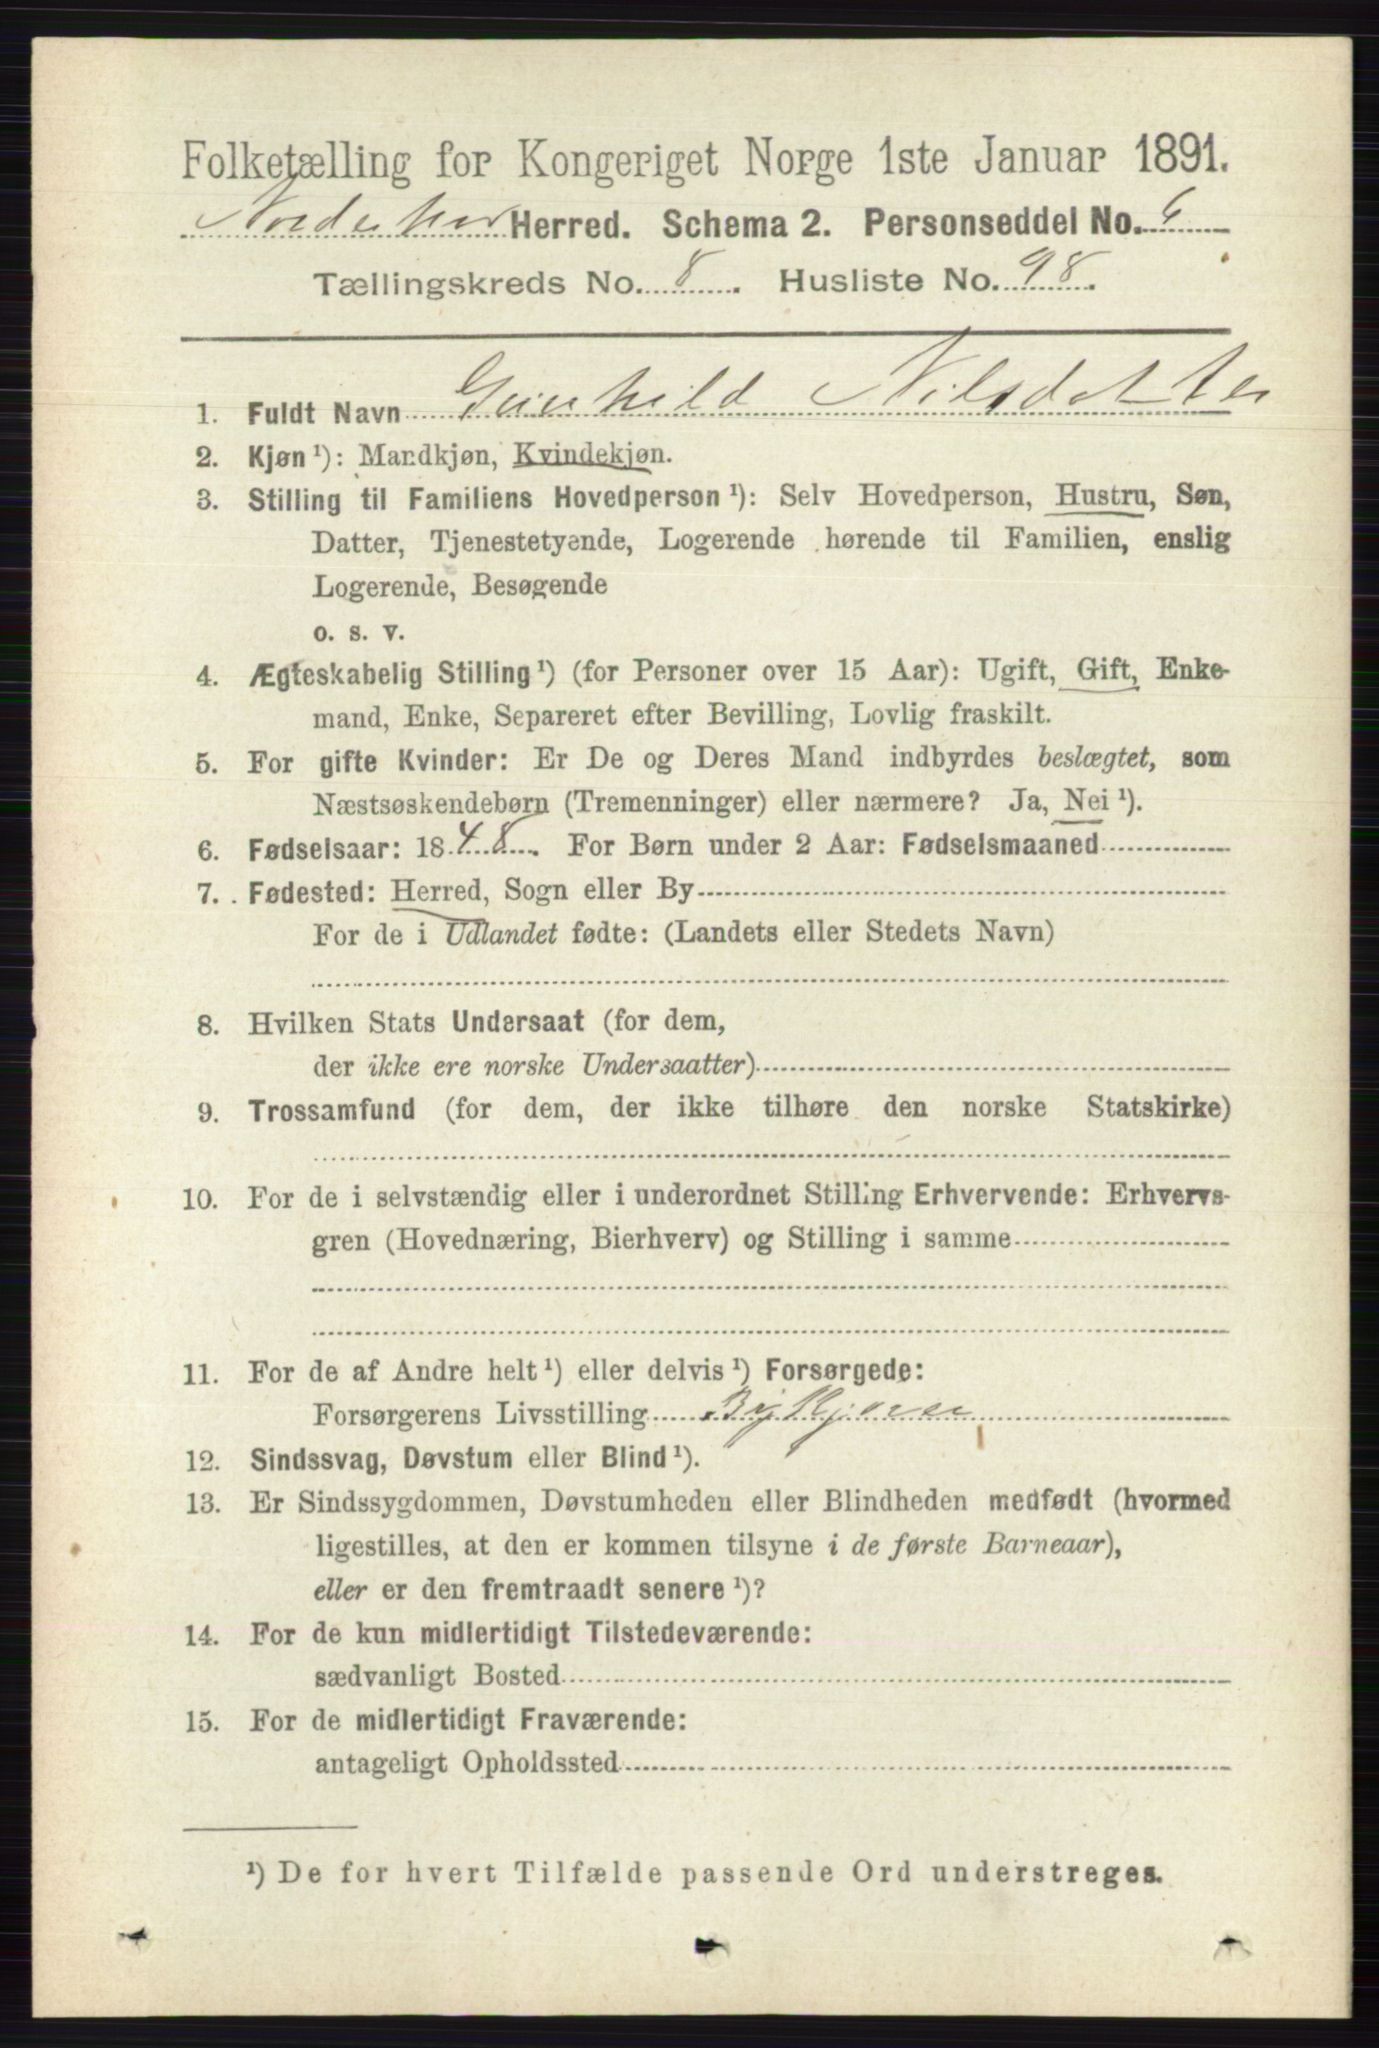 Folketælling for Kongeriget Norge 1ste Januar 1891.
Norderhov Herred. Schema 2. Personseddel No. 6
Tællingskreds No. 8. Husliste No. 98.
1. Fuldt Navn Gunhild Nilsdatter
2. Kjøn ¹): Mandkjøn, Kvindekjøn.
3. Stilling til Familiens Hovedperson ¹): Selv Hovedperson, Hustru, Søn,
Datter, Tjenestetyende, Logerende hørende til Familien, enslig
Logerende, Besøgende
o. s. v.
4. Ægteskabelig Stilling ¹) (for Personer over 15 Aar): Ugift, Gift, Enke-
mand, Enke, Separeret efter Bevilling, Lovlig fraskilt.
5. For gifte Kvinder: Er De og Deres Mand indbyrdes beslægtet, som
Næstsøskendebørn (Tremenninger) eller nærmere? Ja, Nei ¹).
6. Fødselsaar: 1848. For Børn under 2 Aar: Fødselsmaaned
7. Fødested: Herred, Sogn eller By
For de i Udlandet fødte: (Landets eller Stedets Navn)
8. Hvilken Stats Undersaat (for dem,
der ikke ere norske Undersaatter)
9. Trossamfund (for dem, der ikke tilhøre den norske Statskirke)
10. For de i selvstændig eller i underordnet Stilling Erhvervende: Erhvervs-
gren (Hovednæring, Bierhverv) og Stilling i samme
11. For de af Andre helt ¹) eller delvis ¹) Forsørgede:
Forsørgerens Livsstilling
12. Sindssvag, Døvstum eller Blind ¹).
13. Er Sindssygdommen, Døvstumheden eller Blindheden medfødt (hvormed
ligestilles, at den er kommen tilsyne i de første Barneaar),
eller er den fremtraadt senere ¹)?
14. For de kun midlertidigt Tilstedeværende:
sædvanligt Bosted
15. For de midlertidigt Fraværende:
antageligt Opholdssted
¹) De for hvert Tilfælde passende Ord understreges.